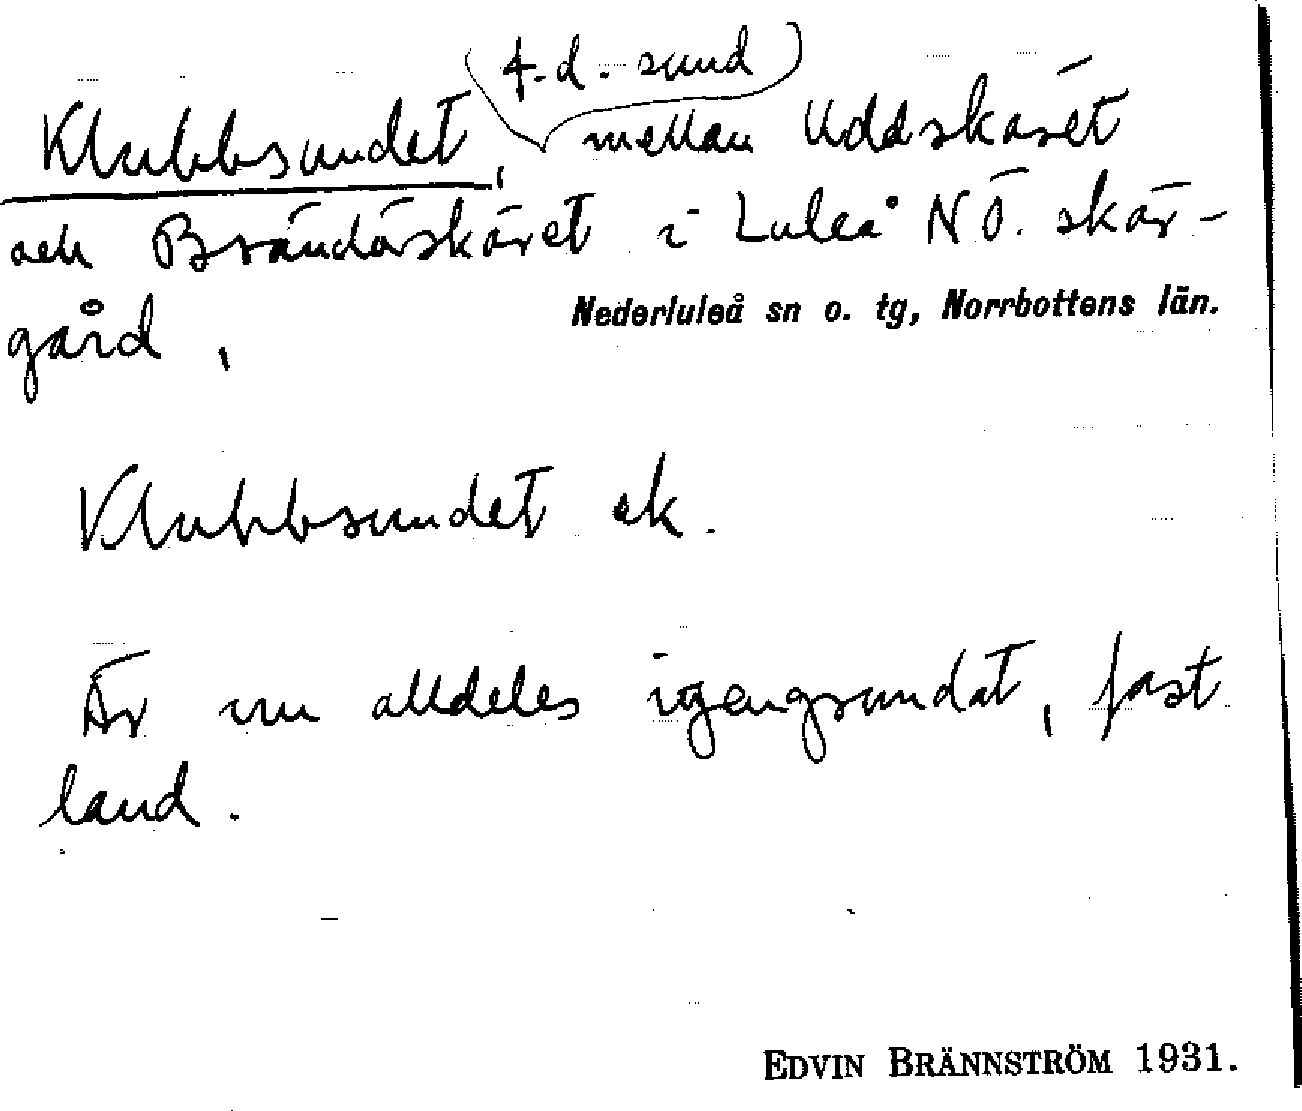 f.d. sund
Klubbsundet, mellan Uddskäret
och Brändöskäret i Luleå NÖ. skär-
gård,
Nederluleå sn o. tg, Norrbottens län.
Klubbsundet ek.
Är nu alldeles igengrundat, fast
land.
EDVIN BRÄNNSTRÖM 1931.